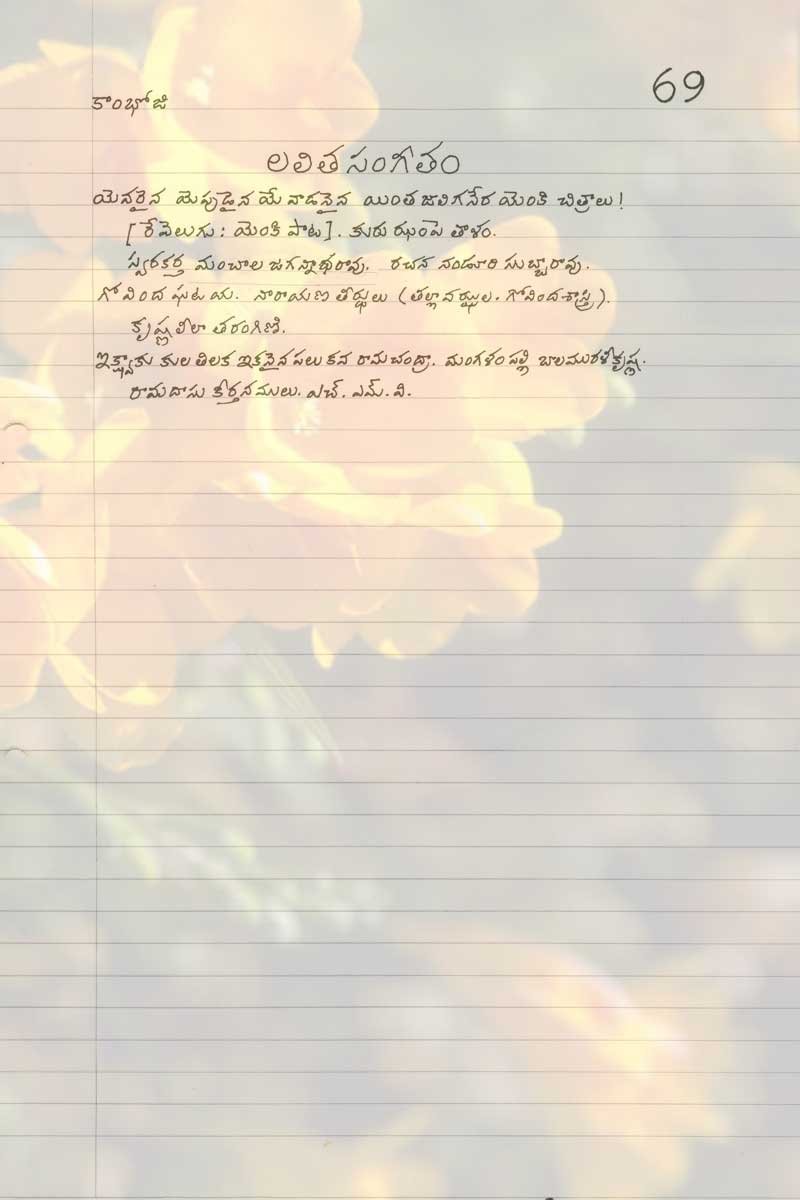 కాంభోజి
69
లలిత సంగీతం
యెవరైన యెపుడైన యే వాడనైన యింత జలిగనేర యెంకి చిత్రాలు!
[ రేవెలుగు : యెంకి పాట ]. కురు ఝంపె తాళం.
స్వరకర్త మంచాల జగన్నాథరావు. రచన నండూరి సుబ్బారావు.
గోవింద ఘటయ. నారాయణ తీర్థులు (తల్లావర్ఝుల. గోవిందశాస్త్రి).
కృష్ణలీలా తరంగిణి.
ఇక్ష్వాకు కుల తిలక ఇకనైన పలుకవ రామచంద్రా. మంగళంపల్లి బాలమురళీకృష్ణ.
రామదాసు కీర్తనములు. ఎచ్. ఎమ్. వి.